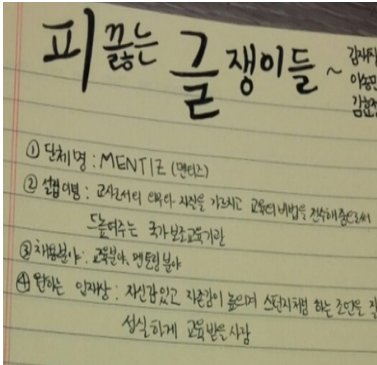 피 끓는 글쟁이들 ~
① 단체명 : MENTIZ (멘티즈)
② 설립이념 : 교사로서의 자질을 가르치고 교육의 비법을 전수해 줌으로써
드높여주는 국가보조교육기관
③ 채용분야 : 교육분야, 멘토링 분야
④ 원하는 인재상 : 자신감있고 자존감이 높으며 스펀지처럼 하는 조언을
성실하게 교육받을 사람